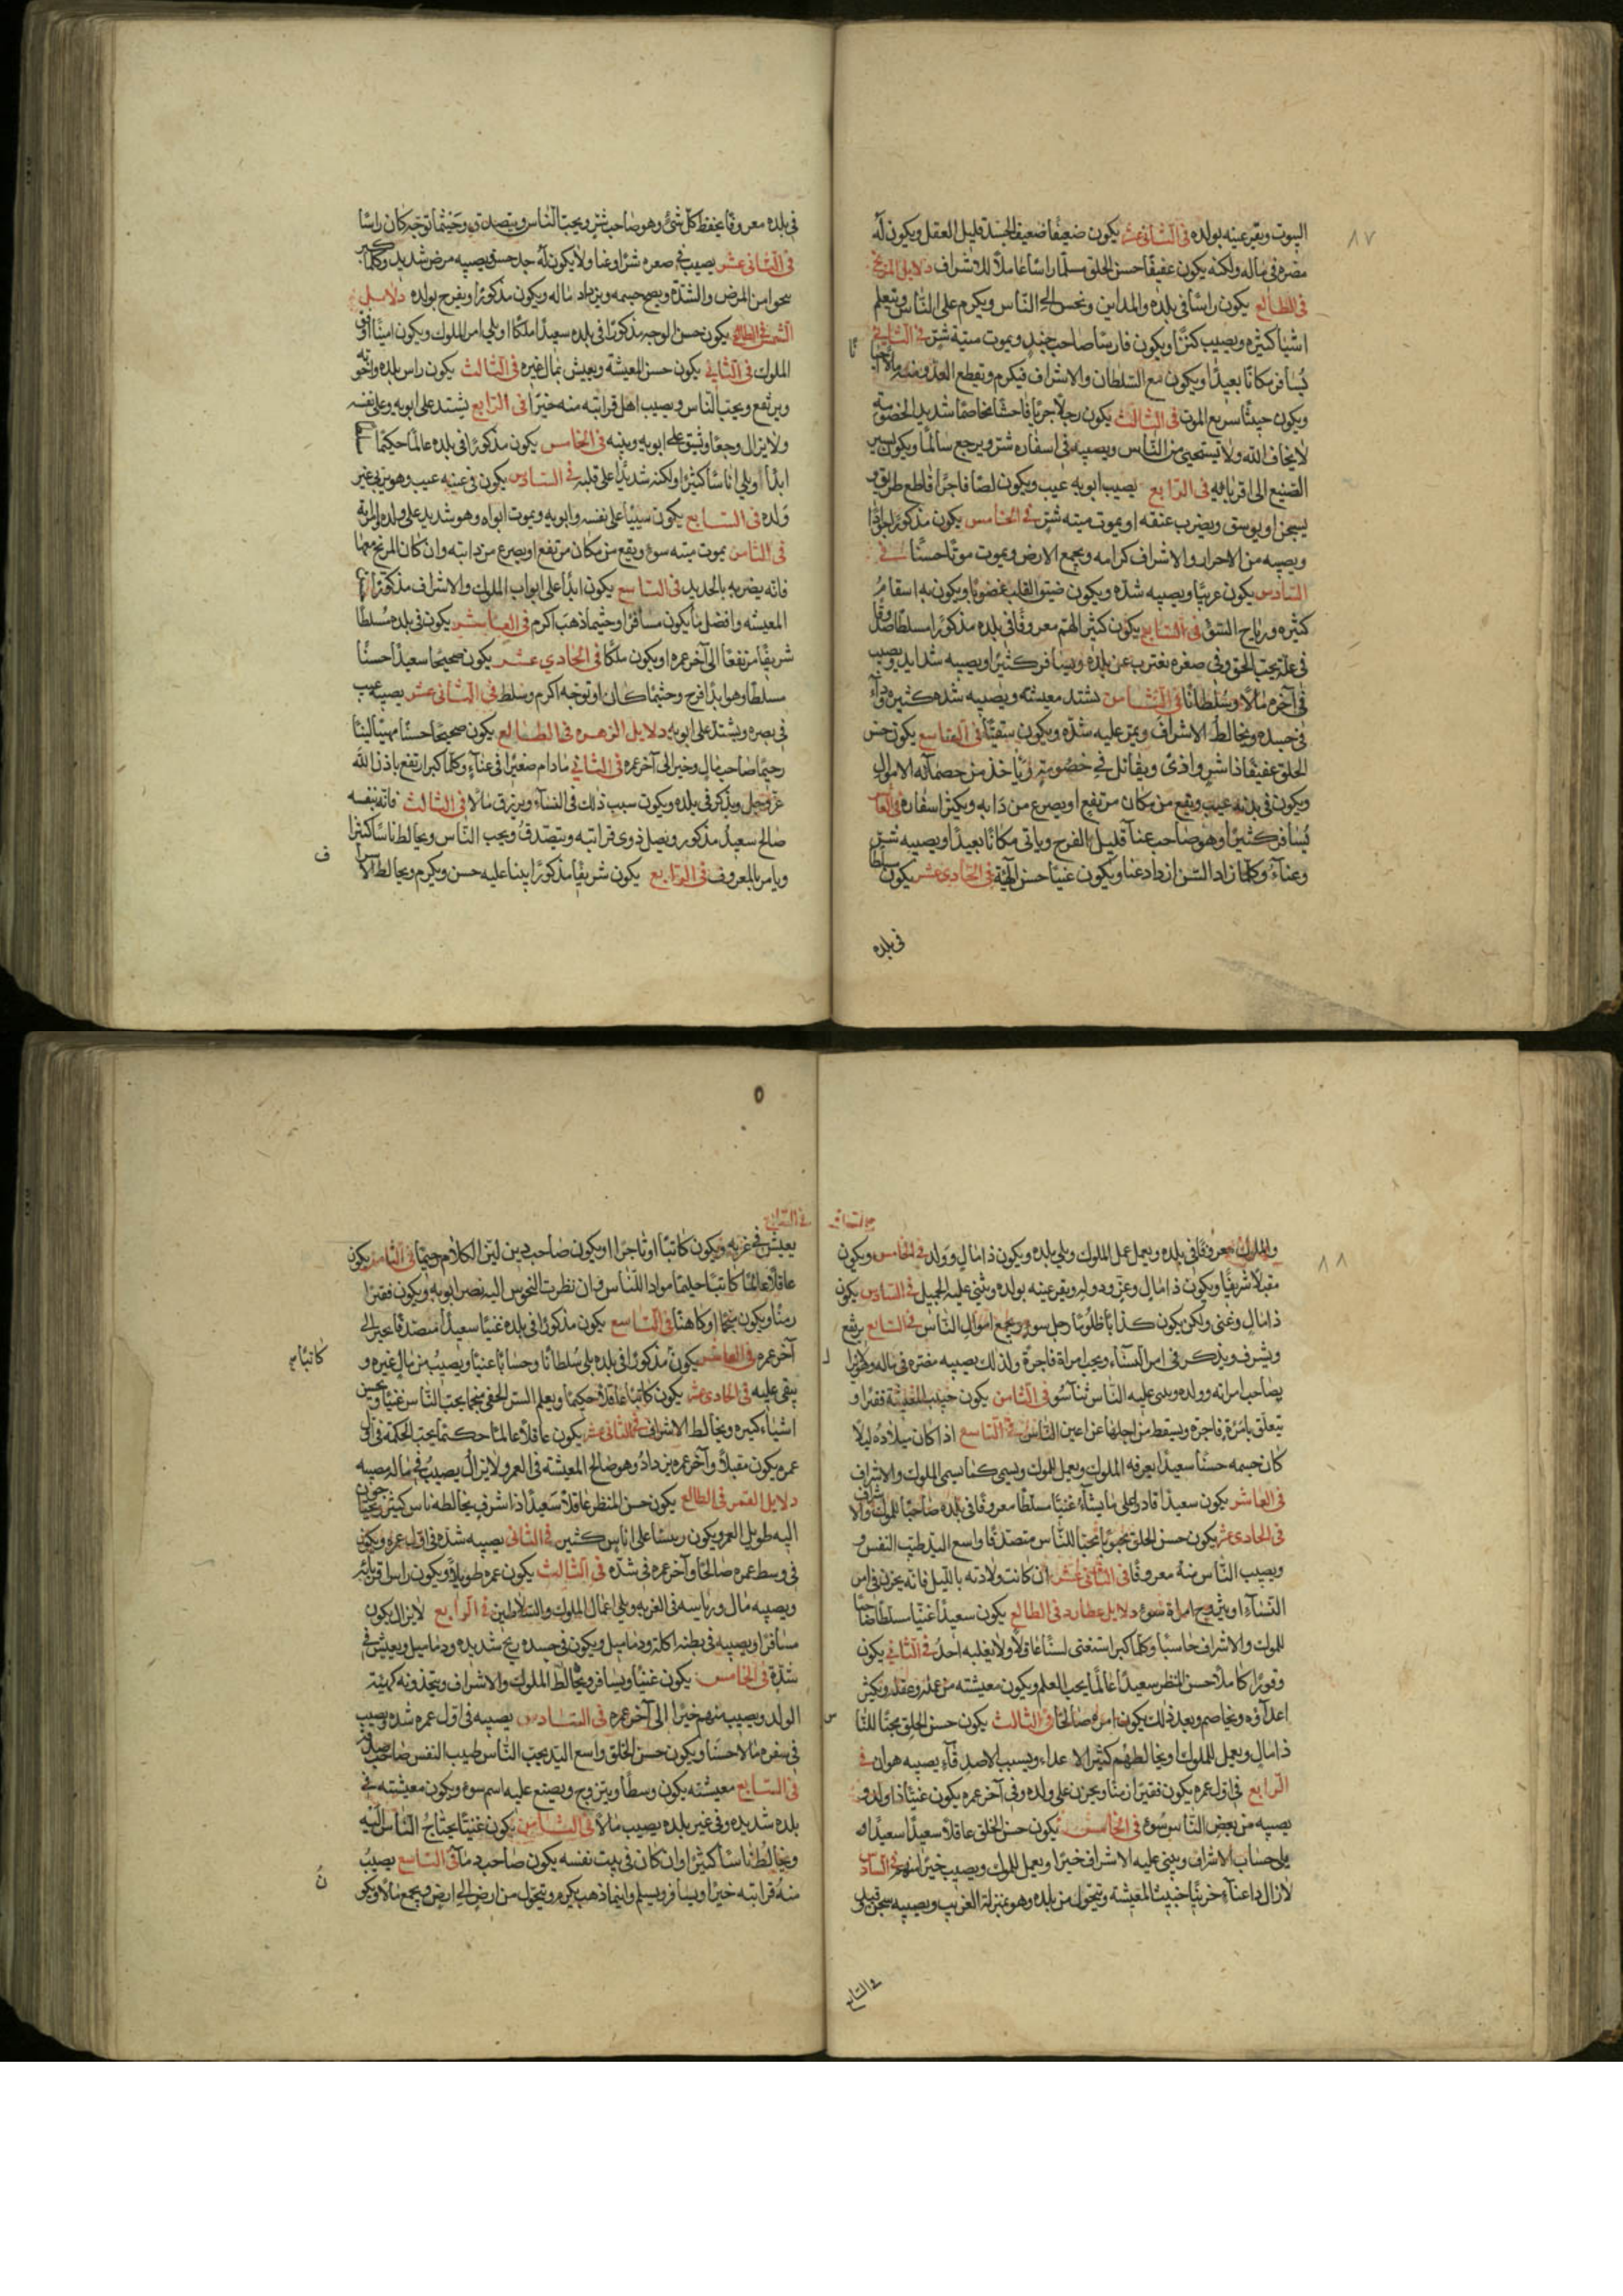 ٨٧
البيوت ويقر عينه بولده في الثاني عشر يكون ضعيفا ضعيف الجسد قليل العقل ويكون له
مضره في ماله ولكنه يكون عفيفا حسن الخلق مسلما راسا عاملا للاشراف دلايل المريخ
في الطالع يكون راسا في بلده والمداين ويحسن الى الناس ويكرم على الناس ويتعلم
اشيا كثيره ويصيب كنزا ويكون فارسا صاحب جند ويموت ميتة شر في الثاني
يسافر مكانا بعيدا ويكون مع السلطان والاشراف فيكرم ويقطع العدو منه
ويكون خبيثا سريع الموت في الثالث يكون رجلا جريا فاحشا مخاصما شديد الخصومة
لا يخاف الله ولا يستحيي من الناس ويصيبه في اسفاره شر ويرجع سالما ويكون يسير
الصنيع الى اقربائه في الرابع يصيب ابويه عيب ويكون لصا فاجرا قاطع طريق
يسجن او يوسق ويضرب عنقه او يموت ميته شر في الخامس يكون مذكورا
ويصيبه من الاحرار والاشراف كرامه ويجمع الارض ويموت موتا حسنا في
السادس يكون غريبا ويصيبه شده ويكون ضيق القلب غضوبا ويكون به اسقام
كثيره ورياح السن في السابع يكون كثير الهم معروفا في بلده مذكورا مسلطا
في علة يحب الحق وفي صغره يغترب عن بلده ويسافر كثيرا ويصيبه شدايد ويصيب
في آخره مالا وسلطانا في الثامن يشتد معيشته ويصيبه شده كثيره
في جسده ويخالط الاشراف ويمر عليه شده ويكون سقيما في التاسع يكون حسن
الخلق عفيفا ذا شر واذى ويقاتل في خصومته وياخذ من خصمائه الاموال
ويكون في بدنه عيب ويقع من مكان مرتفع او يصرع من دابه ويكثر اسفاره في العاشر
يسافر كثيرا وهو صاحب عنا قليل الفرح وياتي مكانا بعيدا ويصيبه شر
وعناء وكلما زاد السن ازداد غنا ويكون غنيا حسن الهيئة في الحادي عشر يكون سلطا
في بلده
في بلده معروفا يحفظ كل شئ وهو صاحب شر ويحب الناس ويتصدق وحيثما توجه كان راسا
في الثاني عشر يصيب في صغره شرا وعنا ولا يكون له جد حسن ويصيبه مرض شديد وكلما كبر
نجوا من المرض والشدة ويصح جسمه ويزداد ماله ويكون مذكورا ويفرح بولده دلايل
الشمس في الطالع يكون حسن الوجه مذكورا في بلده سعيدا ملكا او يلي امر الملوك ويكون امينا
الملوك في الثاني يكون حسن المعيشة ويعيش بمال غيره في الثالث يكون راس بلده واخوته
ويرتفع ويحب الناس ويصيب اهل قرابته منه خيرا في الرابع يشتد على ابويه وعلى نفسه
ولا يزال وجعا وتيق على ابويه وبنيه في الخامس يكون مذكورا في بلده عالما حكيما
ابدا ويلي اناسا كثيرا ولكنه شديدا على قلبه في السادس يكون في عينه عيب وهو يربي غير
ولده في السابع يكون سيئا على نفسه وابويه ويموت ابواه وهو شديد على ولده وامراته
في الثامن يموت ميته سوء ويقع من مكان مرتفع او يصرع من دابته وان كان المريخ معها
فانه يضربه بالحديد في التاسع يكون ابدا على ابواب الملوك والاشراف مذكورا
المعيشه وافضل ما يكون مسافرا وحيثما ذهب اكرم في العاشر يكون في بلده مسلطا
شريفا مرتفعا الى آخر عمره او يكون ملكا في الحادي عشر يكون صحيحا سعيدا حسنا
مسلطا وهو ابدا فرح وحيثما كان او توجه اكرم وسلط في الثاني عشر يصيبه عيب
في بصره ويشتد على ابويه دلايل الزهره في الطالع يكون صحيحا حسنا مهيبا لينا
رحيما صاحب مال وخير الى آخر عمره في الثاني ما دام صغيرا في عناء وكلما كبر ارتفع باذن الله
عز وجل ويذكر في بلده ويكون سبب ذلك في النساء ويرزق مالا في الثالث فانه بنفسه
صالح سعيد مذكور ويصل ذوي قرابته ويتصدق ويحب الناس ويخالط ناسا كثيرا
ويامر بالمعروف في الرابع يكون شريفا مذكورا يثنا عليه حسن ويكرم ويخالط الاشراف
٨٨
والملوك معروفا في بلده ويعمل عمل الملوك ويلي بلده ويكون ذا مال وولد في الخامس ويكون
مقبلا شريفا ويكون ذا مال وعز ودوله ويقر عينه بولده ويثني عليه الجميل في السادس يكون
ذا مال وغنى ولكن يكون كذابا ظلوما رجل سوء ويجمع اموال الناس في السابع يرتفع
ويشرف ويذكر في امر النساء ويحب امراة فاجرة ولذلك يصيبه مضره في ماله
يصاحب امراته وولده ويثنى عليه الناس ثنا سوء في الثامن يكون خبيث المعيشة فقيرا و
يتعلق بامرة فاجرة ويسقط من اجلها عن اعين الناس في التاسع اذا كان ميلاده ليلا
كان جسمه حسنا سعيدا يعرفه الملوك ويعمل للملوك ويسمى كما يسمى الملوك والاشراف
في العاشر يكون سعيدا قادرا على ما يشاء غنيا مسلطا معروفا في بلده صاحبا للملوك والاشراف
في الحادي عشر يكون حسن الخلق محبوبا محبا للناس متصدقا واسع اليد طيب النفس
ويصيب الناس منه معروفا في الثاني عشر ان كانت ولادته بالليل فانه يحزن في امر
النساء او يتزوج امراة سوء دلايل عطارد في الطالع يكون سعيدا غنيا مسلطا صاحبا
للملوك والاشراف حاسبا وكلما كبر استغنى لسنا عاقلا ولا يغلبه احد في الثاني يكون
وقورا كاملا حسن النظر سعيدا عالما يحب العلم ويكون معيشته من عمله وعقله ويكثر
اعداؤه ويخاصم وبعد ذلك يكون امره صالحا في الثالث يكون حسن الخلق محبا للناس
ذا مال ويعمل للملوك ويخالطهم كثير الاعداء وبسبب الاصدقاء يصيبه هوان في
الرابع في اول عمره يكون فقيرا زمنا ويحزن على ولده وفي آخر عمره يكون غنيا ذا ولد
يصيبه من بعض الناس سوء في الخامس يكون حسن الخلق عاقلا سعيدا سعيدا
يلي حساب الاشراف ويثني عليه الاشراف خيرا ويعمل للملوك ويصيب خيرا منهم في السادس
لا زال ذا عناء حزينا خبيث المعيشة ويتحول من بلده وهو بمنزلة الغريب ويصيبه سجن
في السابع
في السابع
يعيش في غربه ويكون كاتبا او تاجرا او يكون صاحب دين لين الكلام رحيما في الثامن يكون
عاقلا عالما كاتبا حليما موادا للناس وان نظرت النحوس اليه يضر ابويه ويكون فقيرا
زمنا ويكون منجما او كاهنا في التاسع يكون مذكورا في بلده غنيا سعيدا متصدقا بخير الى
آخر عمره في العاشر يكون مذكورا في بلده يلي سلطانا وحسابا غنيا ويصيب من مال غيره و
يبقى عليه في الحادي عشر يكون كاتبا عاقلا حكيما ويعلم السر الخفي منجما يحب الناس غنيا ويحسن
اشياء كثيره ويخالط الاشراف في الثاني عشر يكون عاقلا عالما حكيما يحب الحكمة في اول
عمره يكون مقبلا وآخر عمره يزداد وهو صالح المعيشة في العمر ولا يزال يصيب في ماله مصيبه
دلايل القمر في الطالع يكون حسن المنظر عاقلا سعيدا ذا شرف يخالطه ناس كثير
اليه طويل العمر ويكون رييسا على اناس كثير في الثاني يصيبه شده في اول عمره ويكون
في وسط عمره صالحا وآخر عمره في شده في الثالث يكون عمره طويلا ويكون راس اقربائه
ويصيبه مال ورياسه في الغربه ويلي اعمال الملوك والسلاطين في الرابع لا يزال يكون
مسافرا ويصيبه في بطنه اكلة ودماميل ويكون في جسده ريح شديده ودماميل ويعيش في
شدة في الخامس يكون غنيا ويسافر ويخالط الملوك والاشراف ويتخذونه كهيئة
الولد ويصيب منهم خيرا الى آخر عمره في السادس يصيبه في اول عمره شده ويصيب
في سفره مالا حسنا ويكون حسن الخلق واسع اليد يحب الناس طيب النفس صاحب صدق
في السابع معيشته يكون وسطا ويتزوج ويصنع عليه اسم سوء ويكون معيشته في
بلده شديده وفي غير بلده يصيب مالا في الثامن يكون غنيا يحتاج الناس اليه
ويخالط ناسا كثيرا وان كان في بيت نفسه يكون صاحب دما في التاسع يصيب
منه قرابته خيرا ويسافر ويسلم واينما ذهب يكرم ويتحول من ارض الى ارض ويجمع مالا ويكون
كاتبا